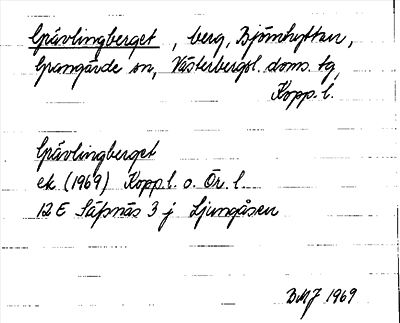 Grävlingberget, berg, Björnhyttan,
Grangärde sn, Västerbergsl. doms. tg,
Kopp. l.
Grävlingberget
ek (1969) Kopp. l. o. Ör. l.
12 E Säfsnäs 3 j Ljungåsen
BMJ 1969